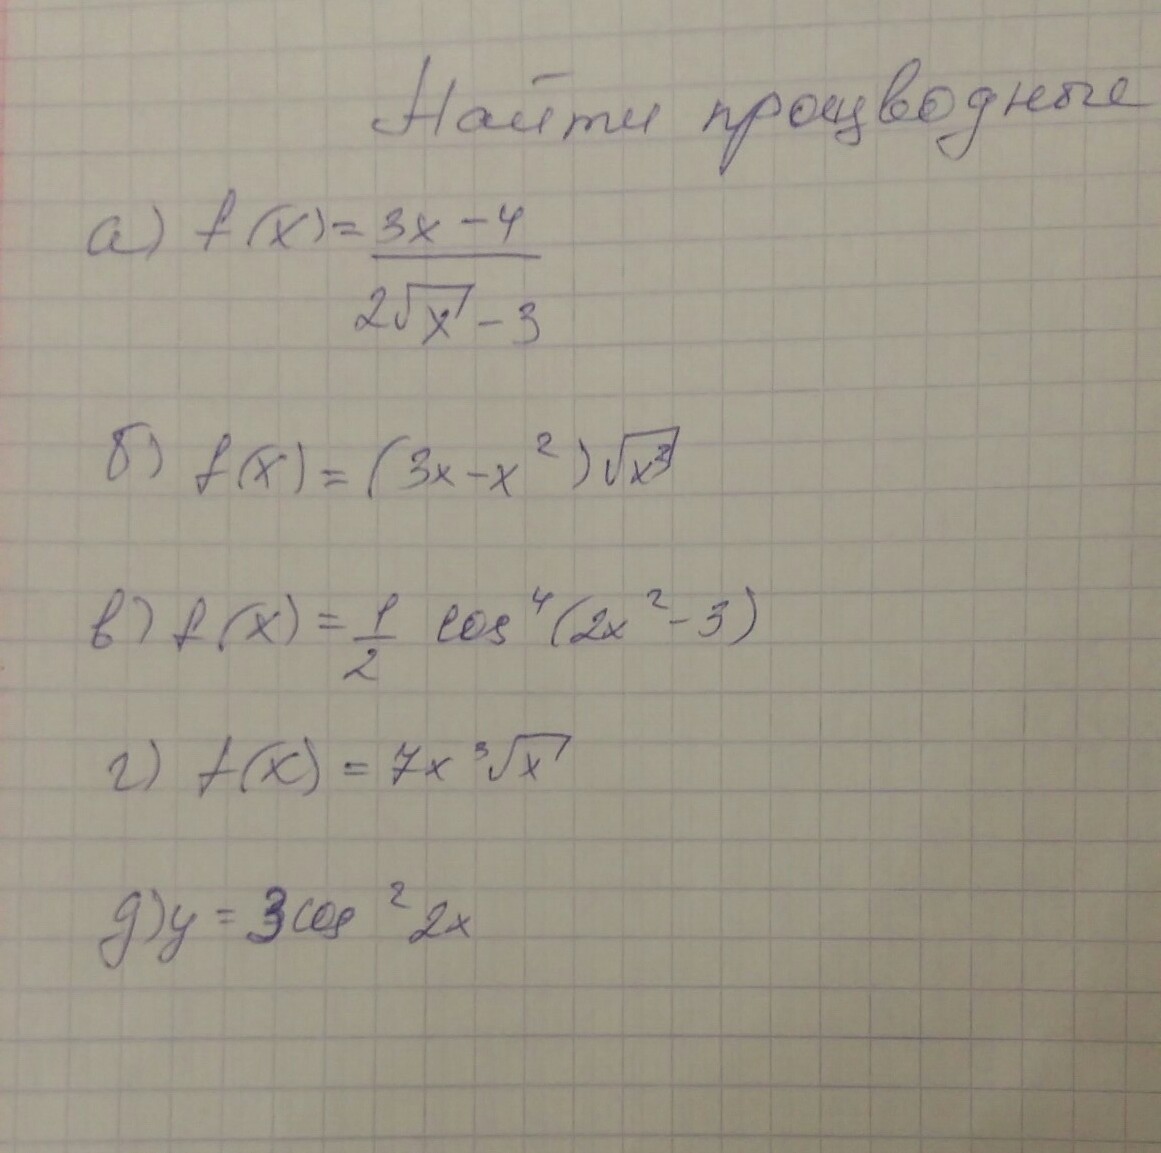 Найти производные
а) f(x) = \frac{3x-4}{2\sqrt{x}-3}
б) f(x) = (3x-x²)\sqrt{x³}
в) f(x) = \frac{1}{2} cos⁴(2x²-3)
г) f(x) = 7x ∛x
д) y = 3cos² 2x